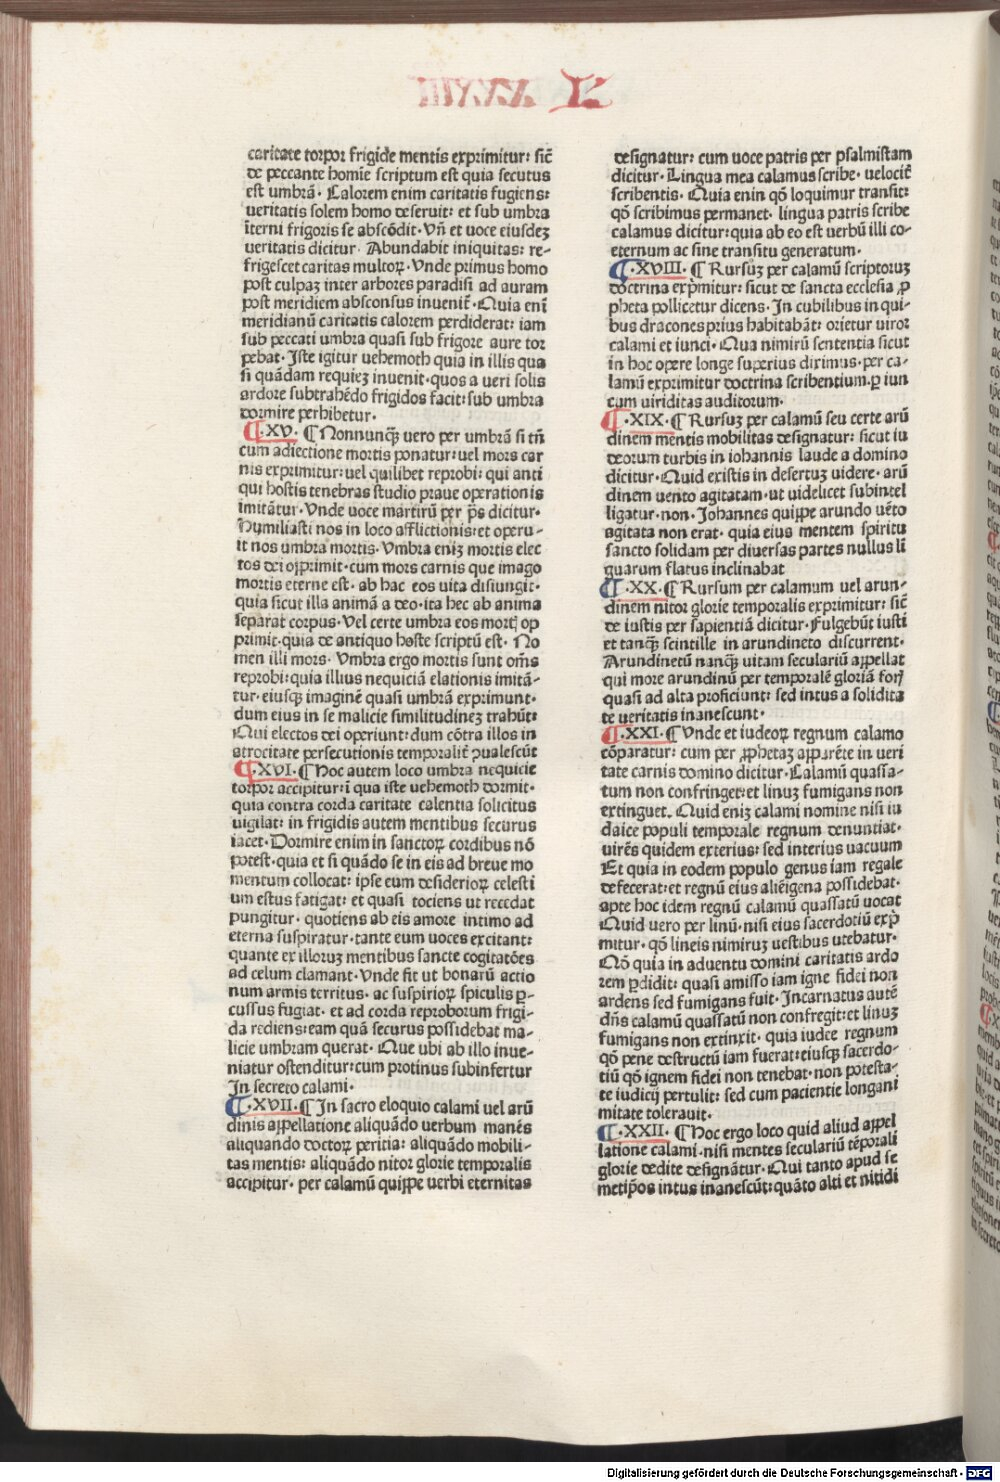 XXXIII L
caritate torpor frigide mentis exprimitur: sic̄
de peccante homie scriptum est quia secutus
est umbrā · Calorem enim caritatis fugiens:
ueritatis solem homo deseruit: et sub umbra
īterni frigoris se abscōdit · Vn̄ et uoce eiusdeꝫ
ueritatis dicitur · Abundabit iniquitas: re-
frigescet caritas multoꝝ · Vnde primus homo
post culpaꝫ inter arbores paradisi ad auram
post meridiem absconsus inuenit̄ · Quia eni̅
meridianū caritatis calorem perdiderat: iam
sub peccati umbra quasi sub frigore aure tor
pebat · Iste igitur uehemoth quia in illis qua
si quādam requieꝫ inuenit · quos a ueri solis
ardore subtrahēdo frigidos facit: sub umbra
dormire perhibetur ·
¶ · XV · ¶ Nonnunqꝫ uero per umbrā si tn̄
cum adiectione mortis ponatur: uel mors car
nis exprimitur: uel quilibet reprobi: qui anti
qui hostis tenebras studio praue operationis
imitātur · Vnde uoce martirū per p̄s dicitur ·
Humiliasti nos in loco afflictionis: et operu-
it nos umbra mortis · Vmbra eniꝫ mortis elec
tos dei opprimit · cum mors carnis que imago
mortis eterne est · ab hac eos uita disiungit ·
quia sicut illa animā a deo · ita hec ab anima
separat corpus · Vel certe umbra eos mortꝭ op
primit · quia de antiquo hoste scriptū est · No
men illi mors · Vmbra ergo mortis sunt om̄s
reprobi: quia illius nequiciā elationis imitā-
tur · eiusqꝫ imaginē quasi umbrā exprimunt ·
dum eius in se malicie similitudineꝫ trahūt:
Qui electos dei operiunt: dum cōtra illos in
atrocitate persecutionis temporalit̄ p̄ualescūt
¶ · XVI · ¶ Hoc autem loco umbra nequicie
torpor accipitur: i qua iste uehemoth dormit ·
quia contra corda caritate calentia solicitus
uigilat: in frigidis autem mentibus securus
iacet · Dormire enim in sanctoꝝ cordibus nō
potest · quia et si quādo se in eis ad breue mo
mentum collocat: ipse eum desiderioꝝ celesti
um estus fatigat: et quasi tociens ut recedat
pungitur · quotiens ab eis amore intimo ad
eterna suspiratur · tante eum uoces excitant:
quante ex illoruꝫ mentibus sancte cogitatōes
ad celum clamant · Vnde fit ut bonarū actio
num armis territus · ac suspirioꝝ spiculis ꝑ-
cussus fugiat · et ad corda reproborum frigi-
da rediens: eam quā securus possidebat ma-
licie umbram querat · Que ubi ab illo inue-
niatur ostenditur: cum protinus subinfertur
In secreto calami ·
¶ · XVII · ¶ In sacro eloquio calami uel arū
dinis appellatione aliquādo uerbum manēs
aliquando doctoꝝ peritia: aliquādo mobili-
tas mentis: aliquādo nitor glorie temporalis
accipitur · per calamū quippe uerbi eternitas
designatur: cum uoce patris per psalmistam
dicitur · Lingua mea calamus scribe · uelocit̄
scribentis · Quia enin qō loquimur transit:
qō scribimus permanet · lingua patris scribe
calamus dicitur: quia ab eo est uerbū illi co-
eternum ac sine transitu generatum ·
¶ · XVIII · ¶ Rursuꝫ per calamū scriptoruꝫ
doctrina exp̄mitur: sicut de sancta ecclesia ꝓ
pheta pollicetur dicens · In cubilibus in qui-
bus dracones prius habitabāt: orietur uiror
calami et iunci · Qua nimirū sententia sicut
in hoc opere longe superius diximus · per ca-
lamū exprimitur doctrina scribentium · ꝑ iun
cum uiriditas auditorum ·
¶ · XIX · ¶ Rursuꝫ per calamū seu certe arū
dinem mentis mobilitas designatur: sicut iu
deorum turbis in iohannis laude a domino
dicitur · Quid existis in desertuꝫ uidere · arū
dinem uento agitatam · ut uidelicet subintel
ligatur · non · Iohannes quippe arundo uēto
agitata non erat · quia eius mentem spiritu
sancto solidam per diuersas partes nullus li
guarum flatus inclinabat
¶ · XX · ¶ Rursum per calamum uel arun-
dinem nitor glorie temporalis exprimitur: sic̄
de iustis per sapientiā dicitur · Fulgebūt iusti
et tanqꝫ scintille in arundineto discurrent ·
Arundinetū nanqꝫ uitam seculariū appellat
qui more arundinū per temporalē gloriā forꝭ
quasi ad alta proficiunt: sed intus a solidita
te ueritatis inanescunt ·
¶ · XXI · ¶ Vnde et iudeoꝝ regnum calamo
cōparatur: cum per ꝓphetaꝫ apparēte in ueri
tate carnis domino dicitur · Calamū quassa-
tum non confringet: et linuꝫ fumigans non
extinguet · Quid eniꝫ calami nomine nisi iu
daice populi temporale regnum denuntiat ·
uirēs quidem exterius: sed interius uacuum
Et quia in eodem populo genus iam regale
defecerat: et regnū eius aliēigena possidebat ·
apte hoc idem regnū calamū quassatū uocat
Quid uero per linū · nisi eius sacerdotiū exp̄
mitur · qō lineis nimiruꝫ uestibus utebatur ·
Nō quia in aduentu domini caritatis ardo
rem ꝑdidit: quasi amisso iam igne fidei non
ardens sed fumigans fuit · Incarnatus autē
dn̄s calamū quassatū non confregit: et linuꝫ
fumigans non extinxit · quia iudee regnum
qō pene destructū iam fuerat: eiusqꝫ sacerdo-
tiū qō ignem fidei non tenebat · non potesta-
te iudicij pertulit: sed cum pacientie longani
mitate tolerauit ·
¶ · XXII · ¶ Hoc ergo loco quid aliud appel
latione calami · nisi mentes seculariū tēporali
glorie dedite designātur · Qui tanto apud se
metip̄os intus inanescūt: quāto alti et nitidi
Digitalisierung gefördert durch die Deutsche Forschungsgemeinschaft · DFG